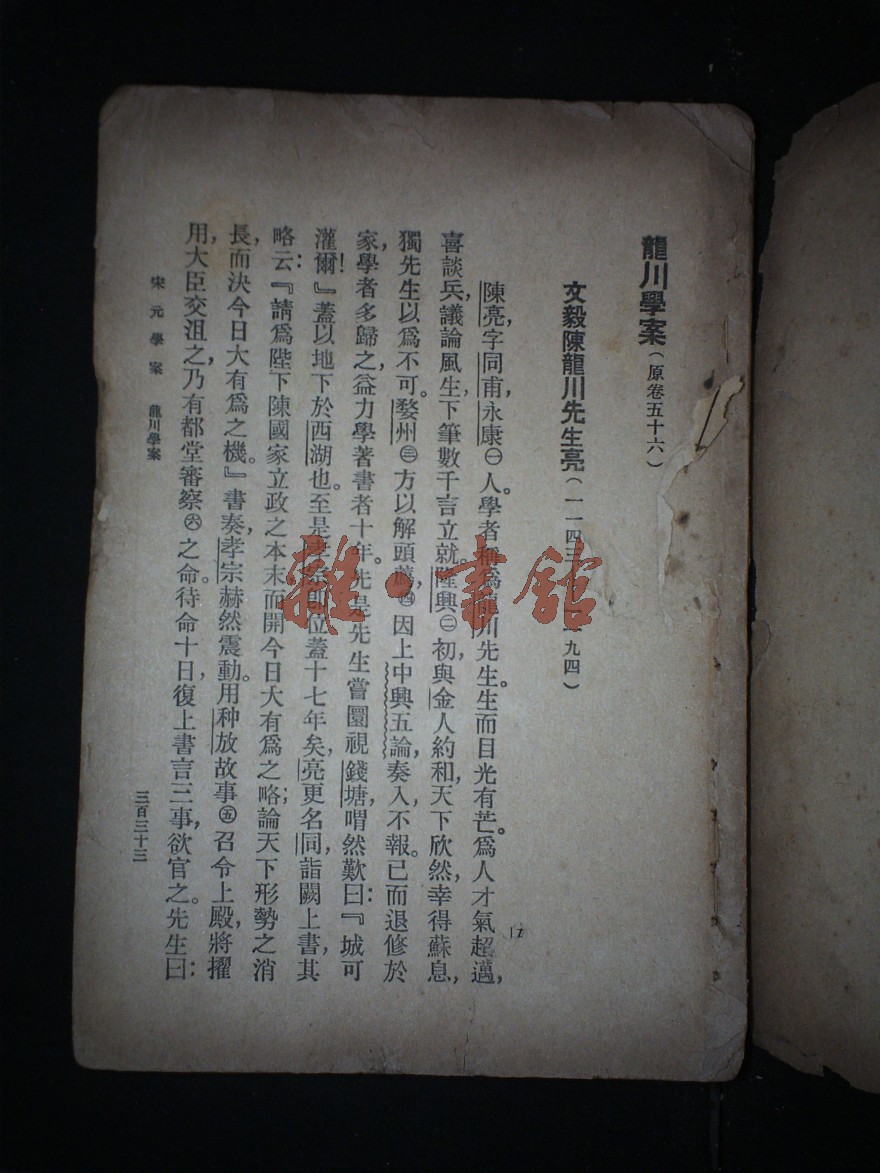 龍川學案（原卷五十六）
文毅陳龍川先生亮（一一四三——一一九四）
陳亮，字同甫，永康㊀人。學者稱爲龍川先生。生而目光有芒。爲人才氣超邁，
喜談兵，議論風生，下筆數千言立就。隆興㊁初，與金人約和，天下欣然，幸得蘇息，
獨先生以爲不可。婺州㊂方以解頭薦，㊃因上中興五論，奏入，不報。已而退修於
家，學者多歸之，益力學著書者十年。先是先生嘗圜視錢塘，喟然歎曰：『城可
灌爾！』蓋以地下於西湖也。至是孝宗卽位蓋十七年矣，亮更名同，詣闕上書，其
略云：『請爲陛下陳國家立政之本末而開今日大有爲之略；論天下形勢之消
長，而決今日大有爲之機。』書奏，孝宗赫然震動。用种放故事㊄召令上殿，將擢
用，大臣交沮之，乃有都堂審察㊅之命。待命十日，復上書言三事，欲官之。先生曰：
宋元學案　龍川學案
三百三十三
雜·書館